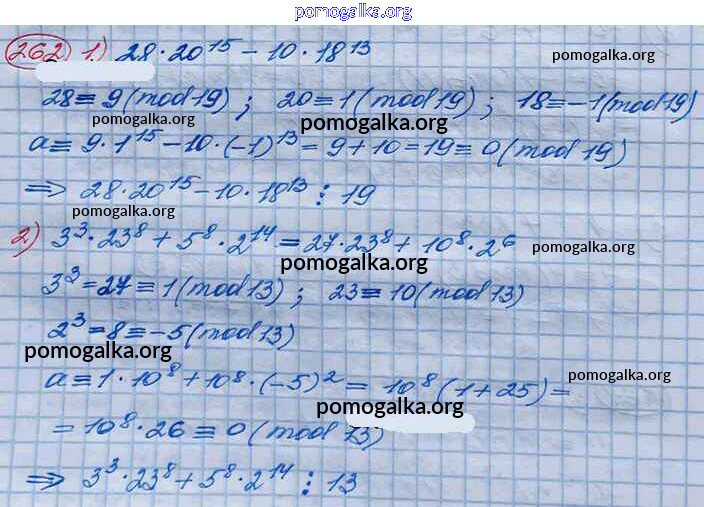 pomogalka.org
262) 1.) 28·20¹⁵ − 10·18¹³
pomogalka.org
28≡9(mod 19); 20≡1(mod 19); 18≡−1(mod 19)
pomogalka.org
pomogalka.org
a≡9·1¹⁵−10·(−1)¹³=9+10=19≡0(mod 19)
⇒ 28·20¹⁵−10·18¹³ ⋮ 19
pomogalka.org
2) 3³·23⁸+5⁸·2¹⁴=27·23⁸+10⁸·2⁶
pomogalka.org
pomogalka.org
3³=27≡1(mod 13); 23≡10(mod 13)
2³=8≡−5(mod 13)
pomogalka.org
a≡1·10⁸+10⁸·(−5)²=10⁸(1+25)=
pomogalka.org
pomogalka.org
=10⁸·26≡0(mod 13)
⇒ 3³·23⁸+5⁸·2¹⁴ ⋮ 13